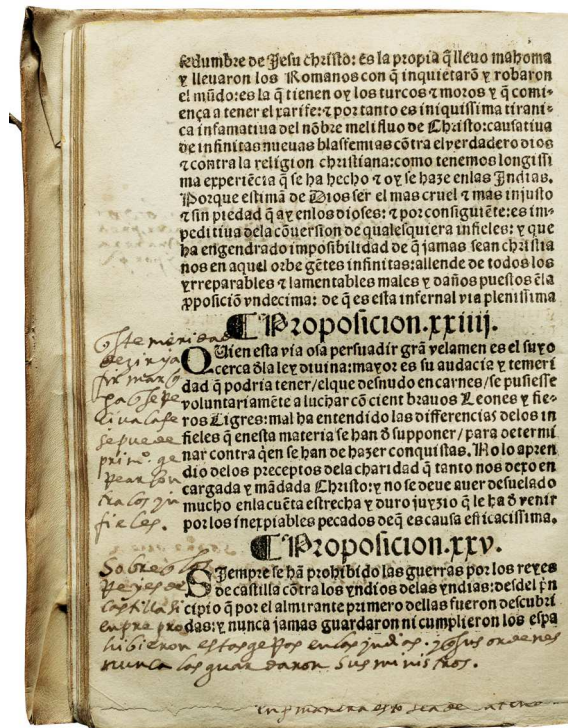 sedumbre de Jesu christo: es la propia q̃ lleuo mahoma
y lleuaron los Romanos con q̃ inquietarõ y robaron
el mũdo: es la q̃ tienen oy los turcos ⁊ moros y q̃ comi-
ença a tener el xarife: ⁊ por tanto es iniquissima tirani-
ca infamatiua del nõbre melifluo de Christo: causatiua
de infinitas nueuas blasfemias cõtra el verdadero dios
⁊ contra la religion christiana: como tenemos longissi
ma experiẽcia q̃ se ha hecho ⁊ oy se haze enlas Indias.
Porque estimã de Dios ser el mas cruel ⁊ mas injusto
⁊ sin piedad q̃ ay enlos dioses: ⁊ por consiguiẽte: es im-
peditiua dela cõuersion de qualesquiera infieles: y que
ha engendrado imposibilidad de q̃ jamas sean christia
nos en aquel orbe gẽtes infinitas: allende de todos los
yrreparables ⁊ lamentables males y daños puestos ẽla
p̱posiciõ vndecima: de q̃ es esta infernal via plenissima
¶ Proposicion.xxiiij.
Quien esta via osa persuadir grã velamen es el suyo
cerca d̃la ley diuina: mayor es su audacia y temeri
dad q̃ podria tener / el que desnudo en carnes / se pusiesse
voluntariamẽte a luchar cõ cient brauos Leones y fie-
ros Tigres: mal ha entendido las differencias delos in
fieles q̃ enesta materia se han d̃ supponer / para determi
nar contra q̃en se han de hazer conquistas. No lo apren
dio delos preceptos dela charidad q̃ tanto nos dexo en
cargada y mãdada Christo: y no se deue auer desuelado
mucho enla cuẽta estrecha y duro juyzio q̃ le ha d̃ venir
por los inexpiables pecados deq̃ es causa eficacissima.
¶ Proposicion.xxv.
Siempre se hã prohibido las guerras por los reyes
de castilla cõtra los yndios delas yndias: desdel p̃n
cipio q̃ por el almirante primero dellas fueron descubri
das: y nunca jamas guardaron ni cumplieron los espa
temeridad
dezir ya
fieles.
Sobre
Reyes de
castilla si
enpre pro
hibieron en las indias. sus ordenes
nunca las guardaron sus ministros.